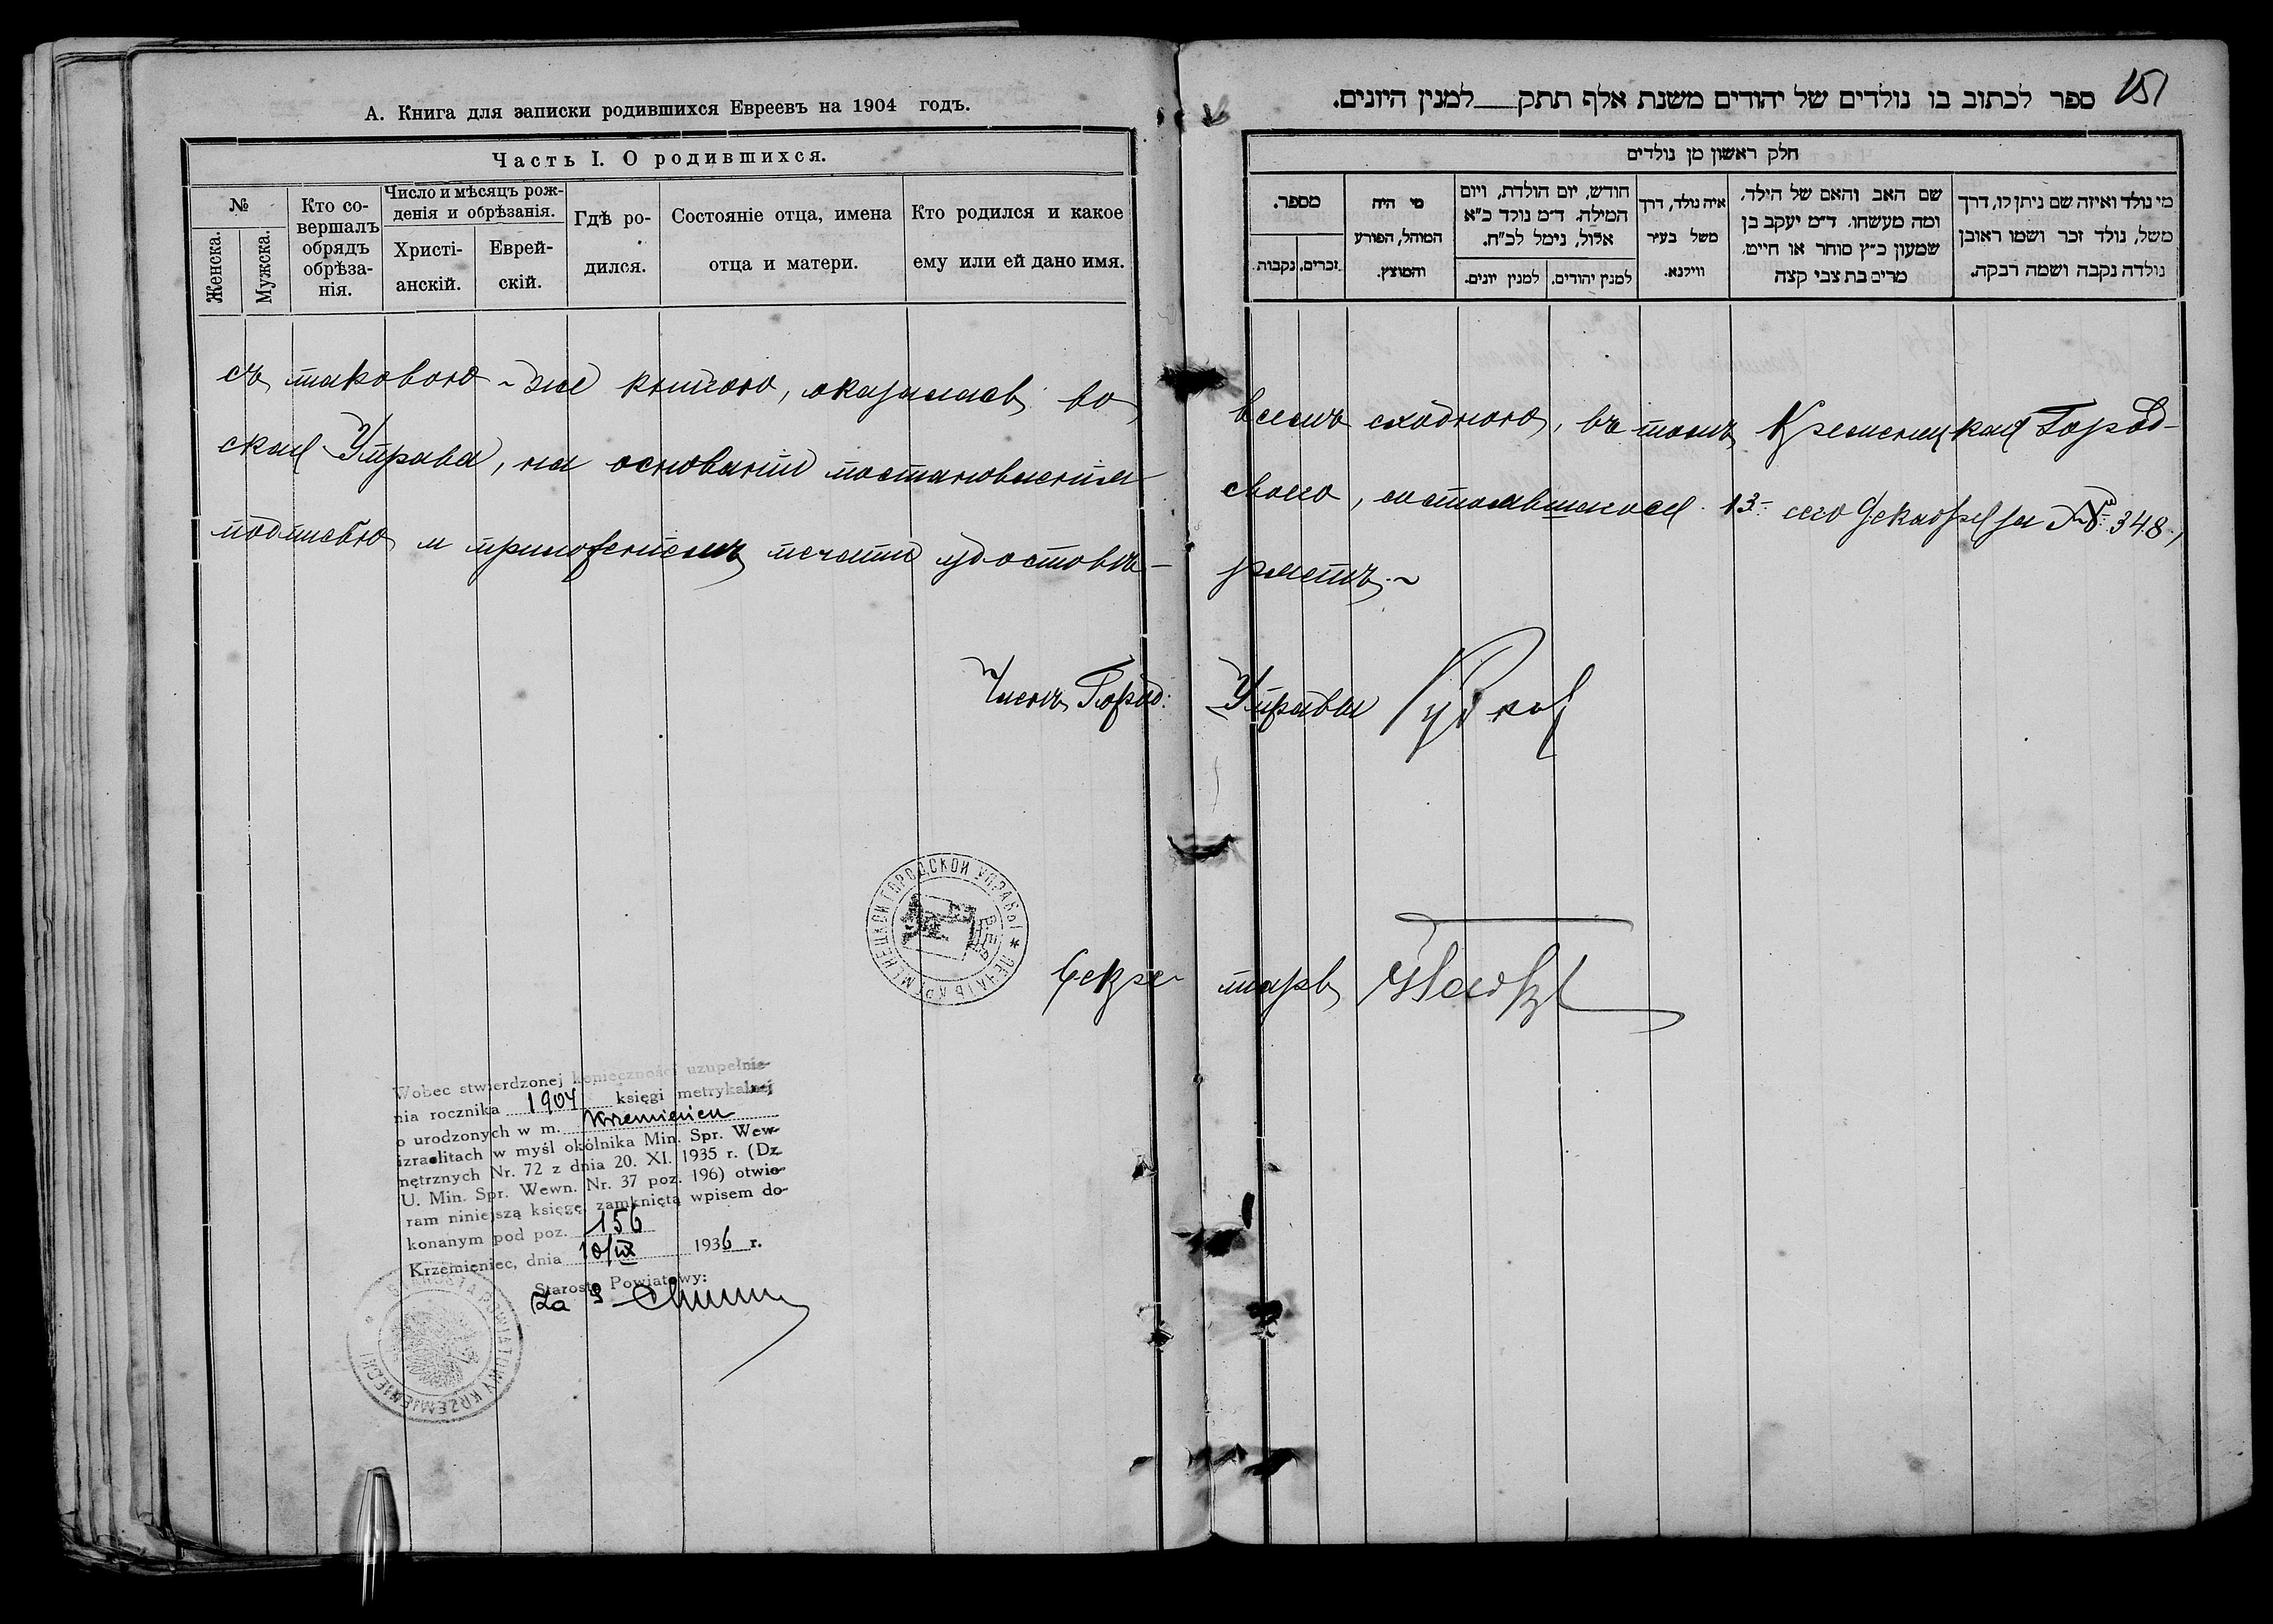 А. Книга для записки родившихся Евреевъ на 1904 годъ.
Часть I. О родившихся.
№
Женска.
Мужска.
Кто со-
вершалъ
обрядъ
обрѣза-
нія.
Число и мѣсяцъ рож-
денія и обрѣзанія.
Христі-
анскій.
Еврей-
скій.
Гдѣ ро-
дился.
Состояніе отца, имена
отца и матери.
Кто родился и какое
ему или ей дано имя.
151
ספר לכתוב בו נולדים של יהודים משנת אלף תתק למנין היונים.
חלק ראשון מן נולדים
מספר.
זכרים.
נקבות
מי היה
המוהל, הפורע
והמוצץ.
חודש, יום הולדת, ויום
המילה. ד״מ נולד כ״א
אלול, נימל לכ״ח.
למנין יהודים.
למנין יונים.
איה נולד, דרך
משל בעיר
ווילנא.
שם האב והאם של הילד,
ומה מעשהו. ד״מ יעקב בן
שמעון כ״ץ סוחר או חייט.
מרים בת צבי קצה
מי נולד ואיזה שם ניתן לו, דרך
משל, נולד זכר ושמו ראובן
נולדה נקבה ושמה רבקה.
съ таковою-же книгою, оказалась во всемъ сходною, въ томъ Кременецкая Город-
ская Управа, на основаніи постановленія своего, состоявшагося 13 сего Декабря за № 348,
подписью и приложеніемъ печати удостовѣ- ряетъ.
Членъ Город: Управы
ПЕЧАТЬ КРЕМЕНЕЦКОЙ ГОРОДСКОЙ УПРАВЫ
Секре- тарь
Wobec stwierdzonej konieczności uzupełnie-
nia rocznika 1904 księgi metrykalnej
o urodzonych w m. Krzemieniec
izraelitach w myśl okólnika Min. Spr. Wew-
nętrznych Nr. 72 z dnia 20. XI. 1935 r. (Dz.
U. Min. Spr. Wewn. Nr. 37 poz. 196) otwie-
ram niniejszą księgę, zamkniętą wpisem do-
konanym pod poz. 156
Krzemieniec, dnia 10/IX 1936 r.
Starosta Powiatowy:
Za
STAROSTA POWIATOWY KRZEMIENIECKI